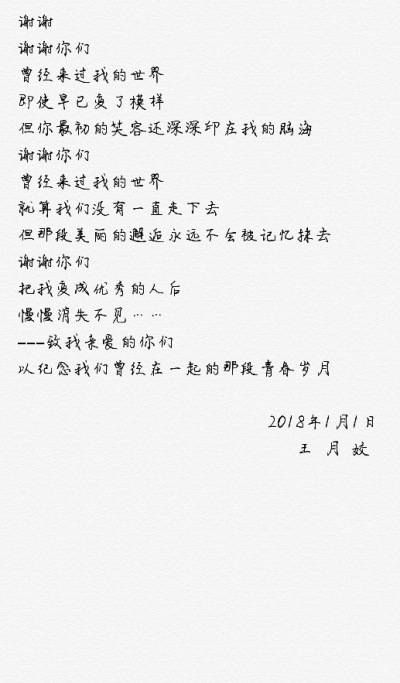 谢谢
谢谢你们
曾经来过我的世界
即使早已变了模样
但你最初的笑容还深深印在我的脑海
谢谢你们
曾经来过我的世界
就算我们没有一直走下去
但那段美丽的邂逅永远不会被记忆抹去
谢谢你们
把我变成优秀的人后
慢慢消失不见……
---致我亲爱的你们
以纪念我们曾经在一起的那段青春岁月
2018年1月1日
王 月 姣